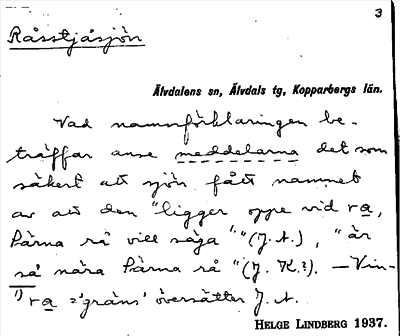 3
Råsstjåsjön
Älvdalens sn, Älvdals tg, Kopparbergs län.
Vad namnförklaringen be-
träffar anse meddelarna det som
säkert att sjön fått namnet
av att den "ligger oppe vid ra,
Särna rå vill säga¹⁾" (J. A.), "är
så nära Särna rå" (J. K.?). — Vin-
¹⁾ ra = 'gräns' översätter J. A.
HELGE LINDBERG 1937.